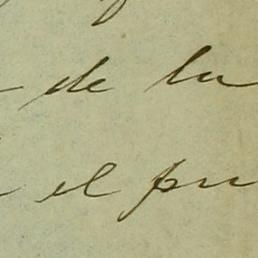 de la
el pu